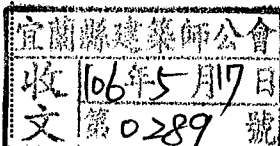 宜蘭縣建築師公會
收 106年5月17日
文 第0289號